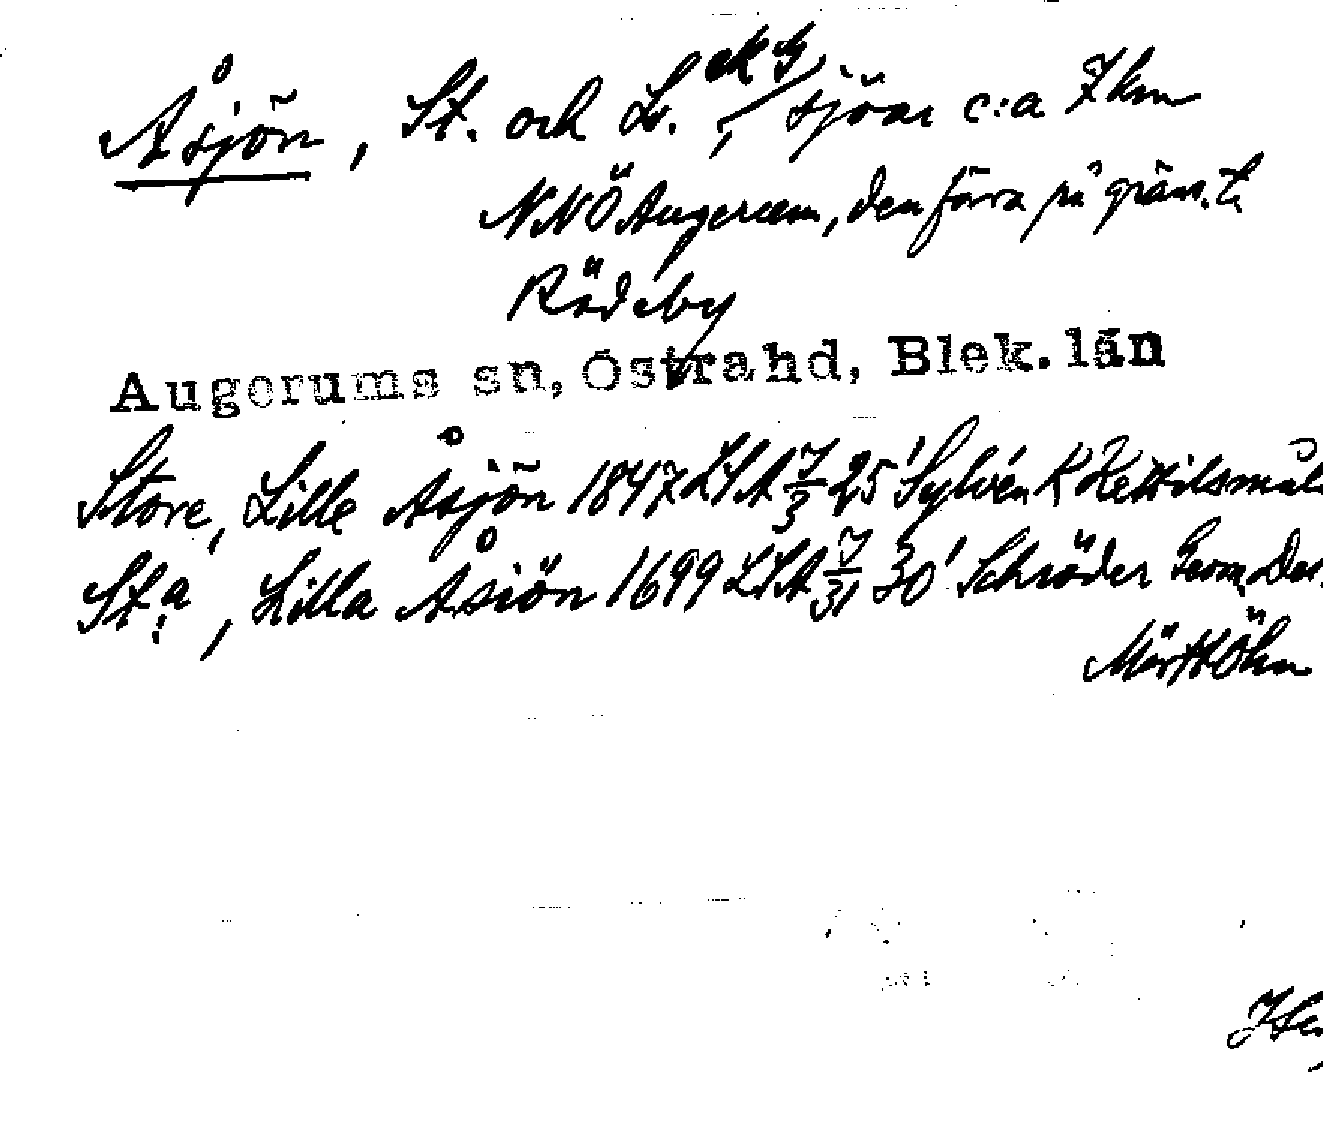 Åsjön, St. och L. ek G, sjöar c:a 7 km
NNÖ Augerum, den förra på gräns. t.
Rödeby
Augerums sn, Östra hd, Blek. län
Store, Lille Åsjön 1847 LSA 7/3 25' Sylvén K Hettilsmål
St:a, Lilla Åsiön 1699 LSA 7/31 30' Schröder Geom. Des.
Mörtt Öhn